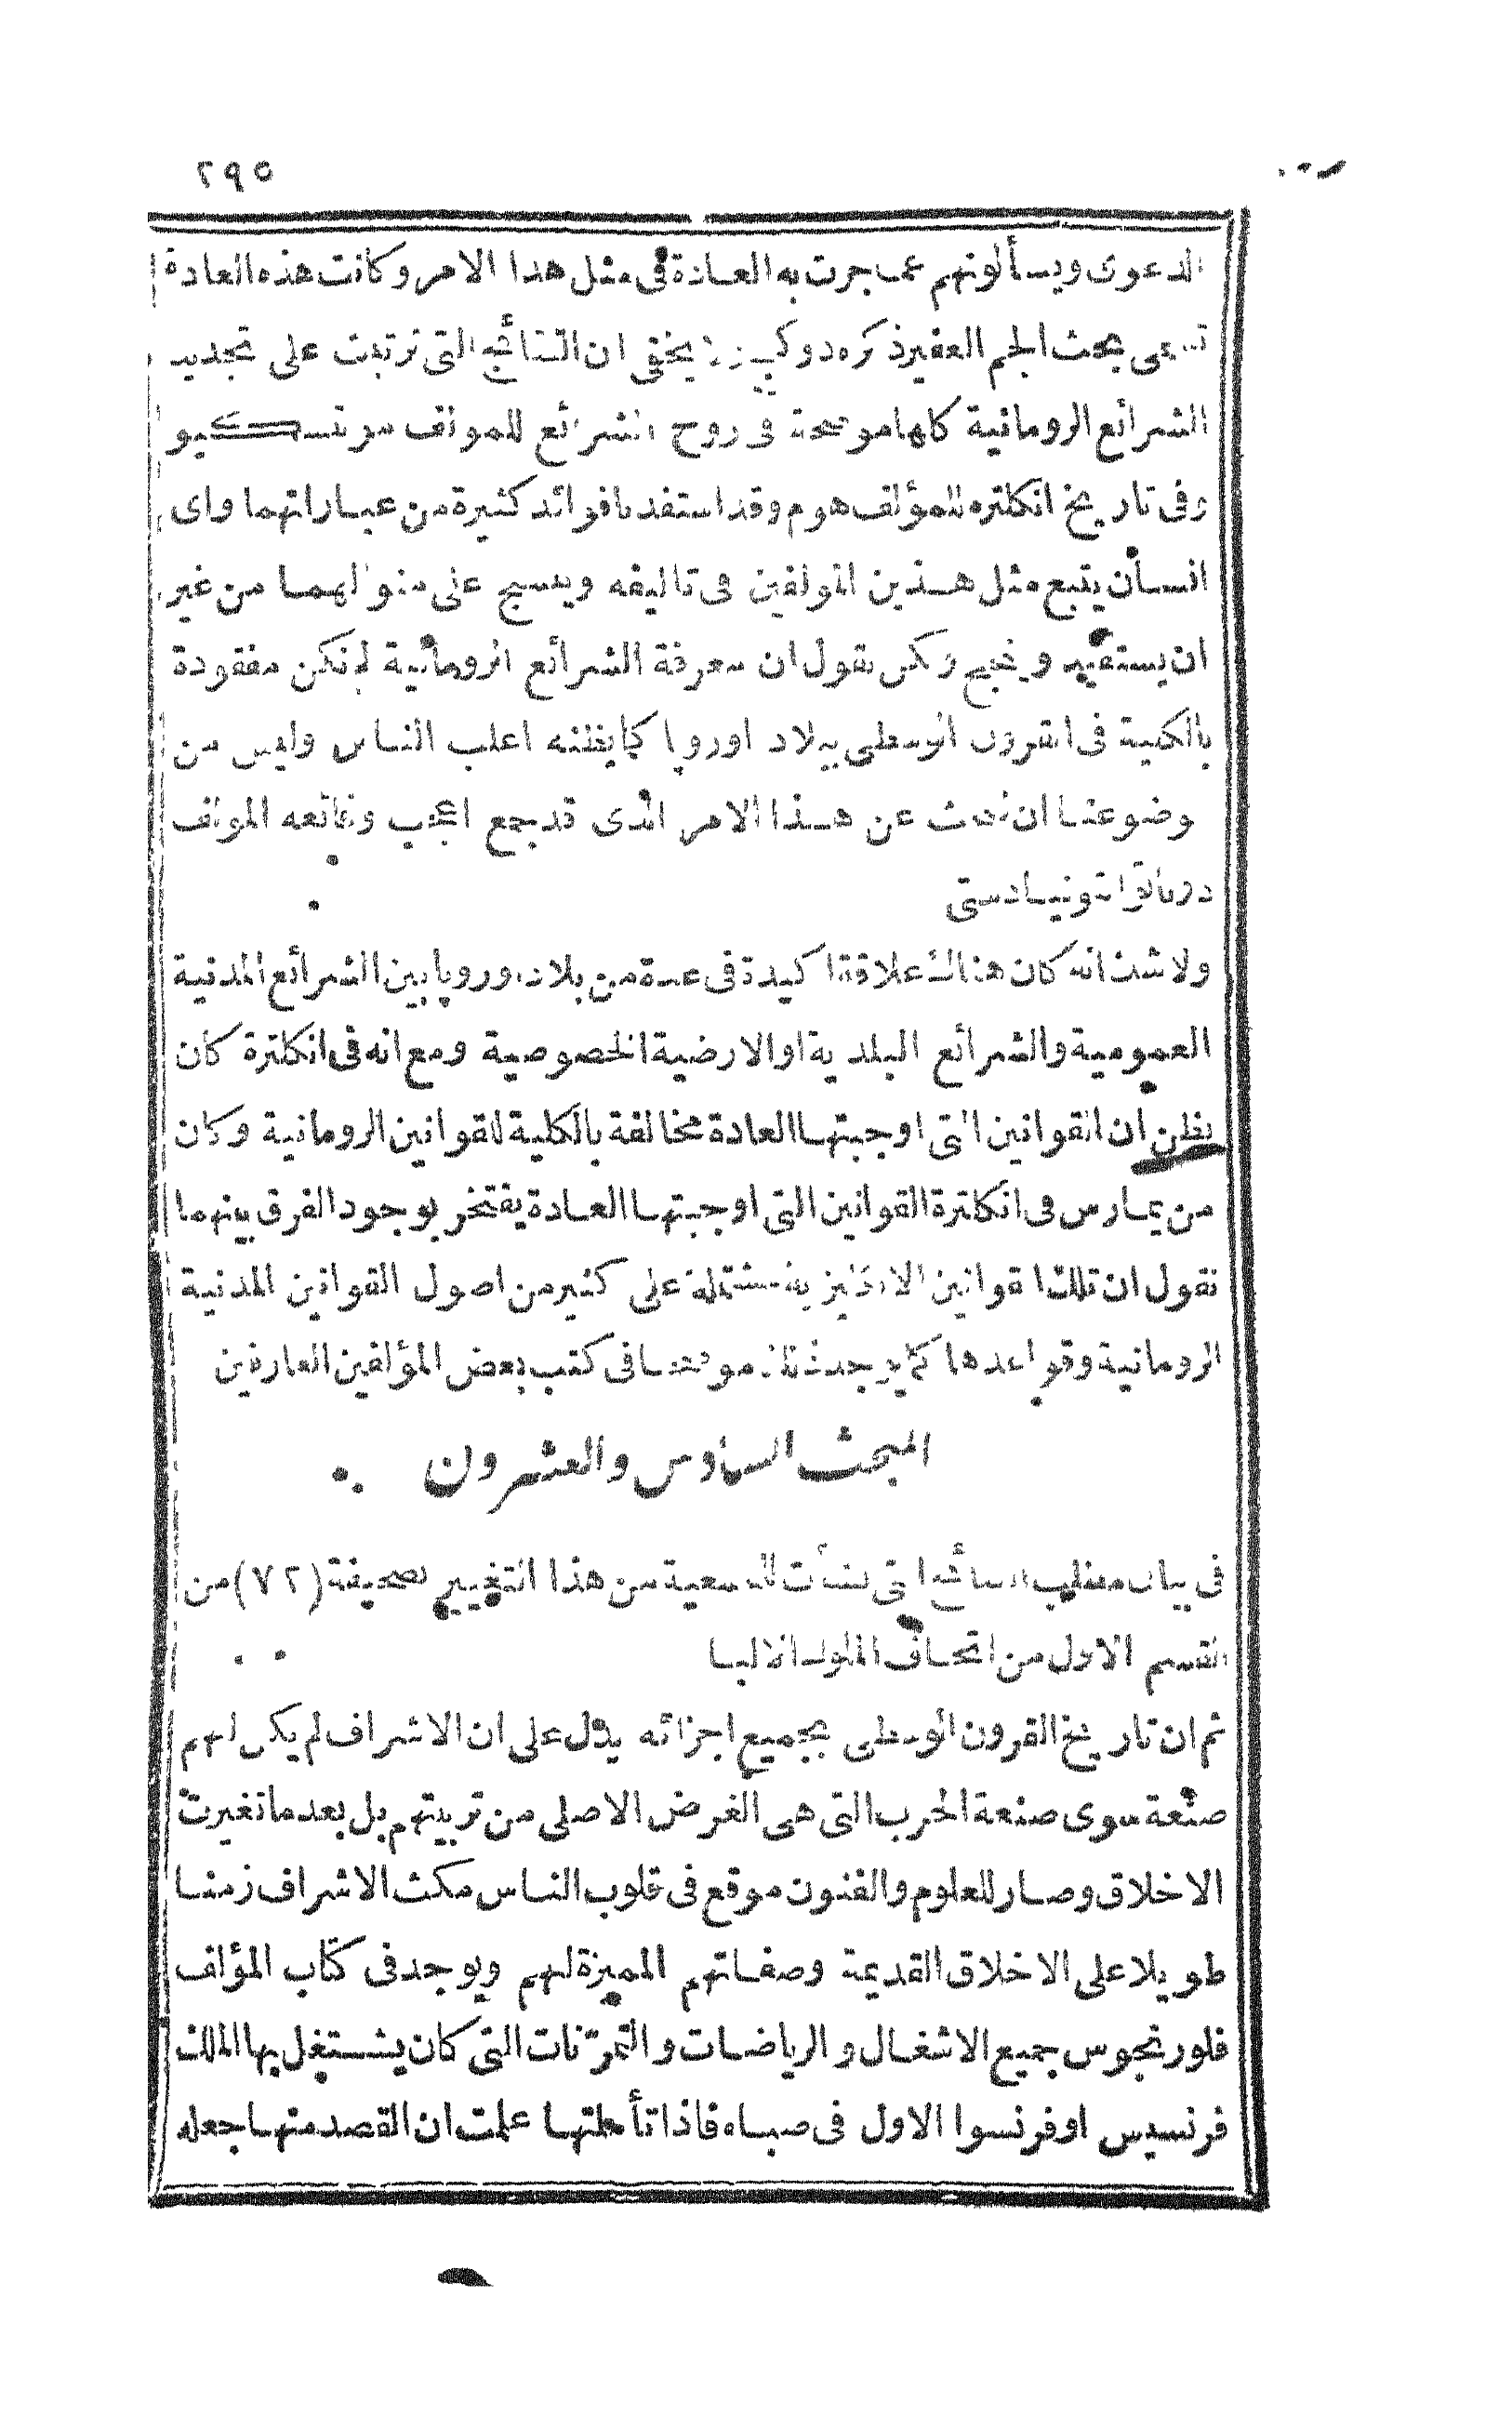 ٢٩٥
الدعوى ويسألونهم عما جرت به العادة فى مثل هذا الامر وكانت هذه العادة
تسمى بحث الجم الغفير ذكره دوكـ يخفى ان النتائج التى ترتبت على تجديد
الشرائع الرومانية كلها موضحة فى روح الشرائع للمؤلف مونتسكيو
وفى تاريخ انكلتره للمؤلف هوم وقد استفدنا فوائد كثيرة من عباراتهما واى
انسان يتبع مثل هذين المؤلفين فى تاليفه وينسج على منوالهما من غير
ان يستفيد وينجح ولكن نقول ان معرفة الشرائع الرومانية لم تكن مفقودة
بالكلية فى القرون الوسطى ببلاد اوروپا كما يظنه اغلب الناس وليس من
وضوعنا ان نبحث عن هذا الامر الذى قد جمع اعجب وقائعه المؤلف
ولا شك انه كان هناك علاقة اكيدة فى عدة من بلاد اوروپا بين الشرائع المدنية
العمومية والشرائع البلدية او الارضية الخصوصية ومع انه فى انكلترة كان
يظن ان القوانين التى اوجبتها العادة مخالفة بالكلية للقوانين الرومانية وكان
من يمارس فى انكلترة القوانين التى اوجبتها العادة يفتخر بوجود الفرق بينهما
نقول ان تلك القوانين الانكليزية مشتملة على كثير من اصول القوانين المدنية
الرومانية وقواعدها كما يوجد ذلك موضحا فى كتب بعض المؤلفين العارفين
المبحث السادس والعشرون
فى بيان مطلب النتائج التى نشأت للجمعية من هذا التغيير بصحيفة (٧٢) من
القسم الاول من اتحاف الملوك الالبا
ثم ان تاريخ القرون الوسطى بجميع اجزائه يدل على ان الاشراف لم يكن لهم
صنعة سوى صنعة الحرب التى هى الغرض الاصلى من تربيتهم بل بعد ما تغيرت
الاخلاق وصار للعلوم والفنون موقع فى قلوب الناس مكث الاشراف زمنا
طويلا على الاخلاق القديمة وصفاتهم المميزة لهم ويوجد فى كتاب المؤلف
فلورنجوس جميع الاشغال والرياضات والتمرّنات التى كان يشتغل بها الملك
فرنسيس او فرنسوا الاول فى صباه فاذا تأملتها علمت ان القصد منها جعله